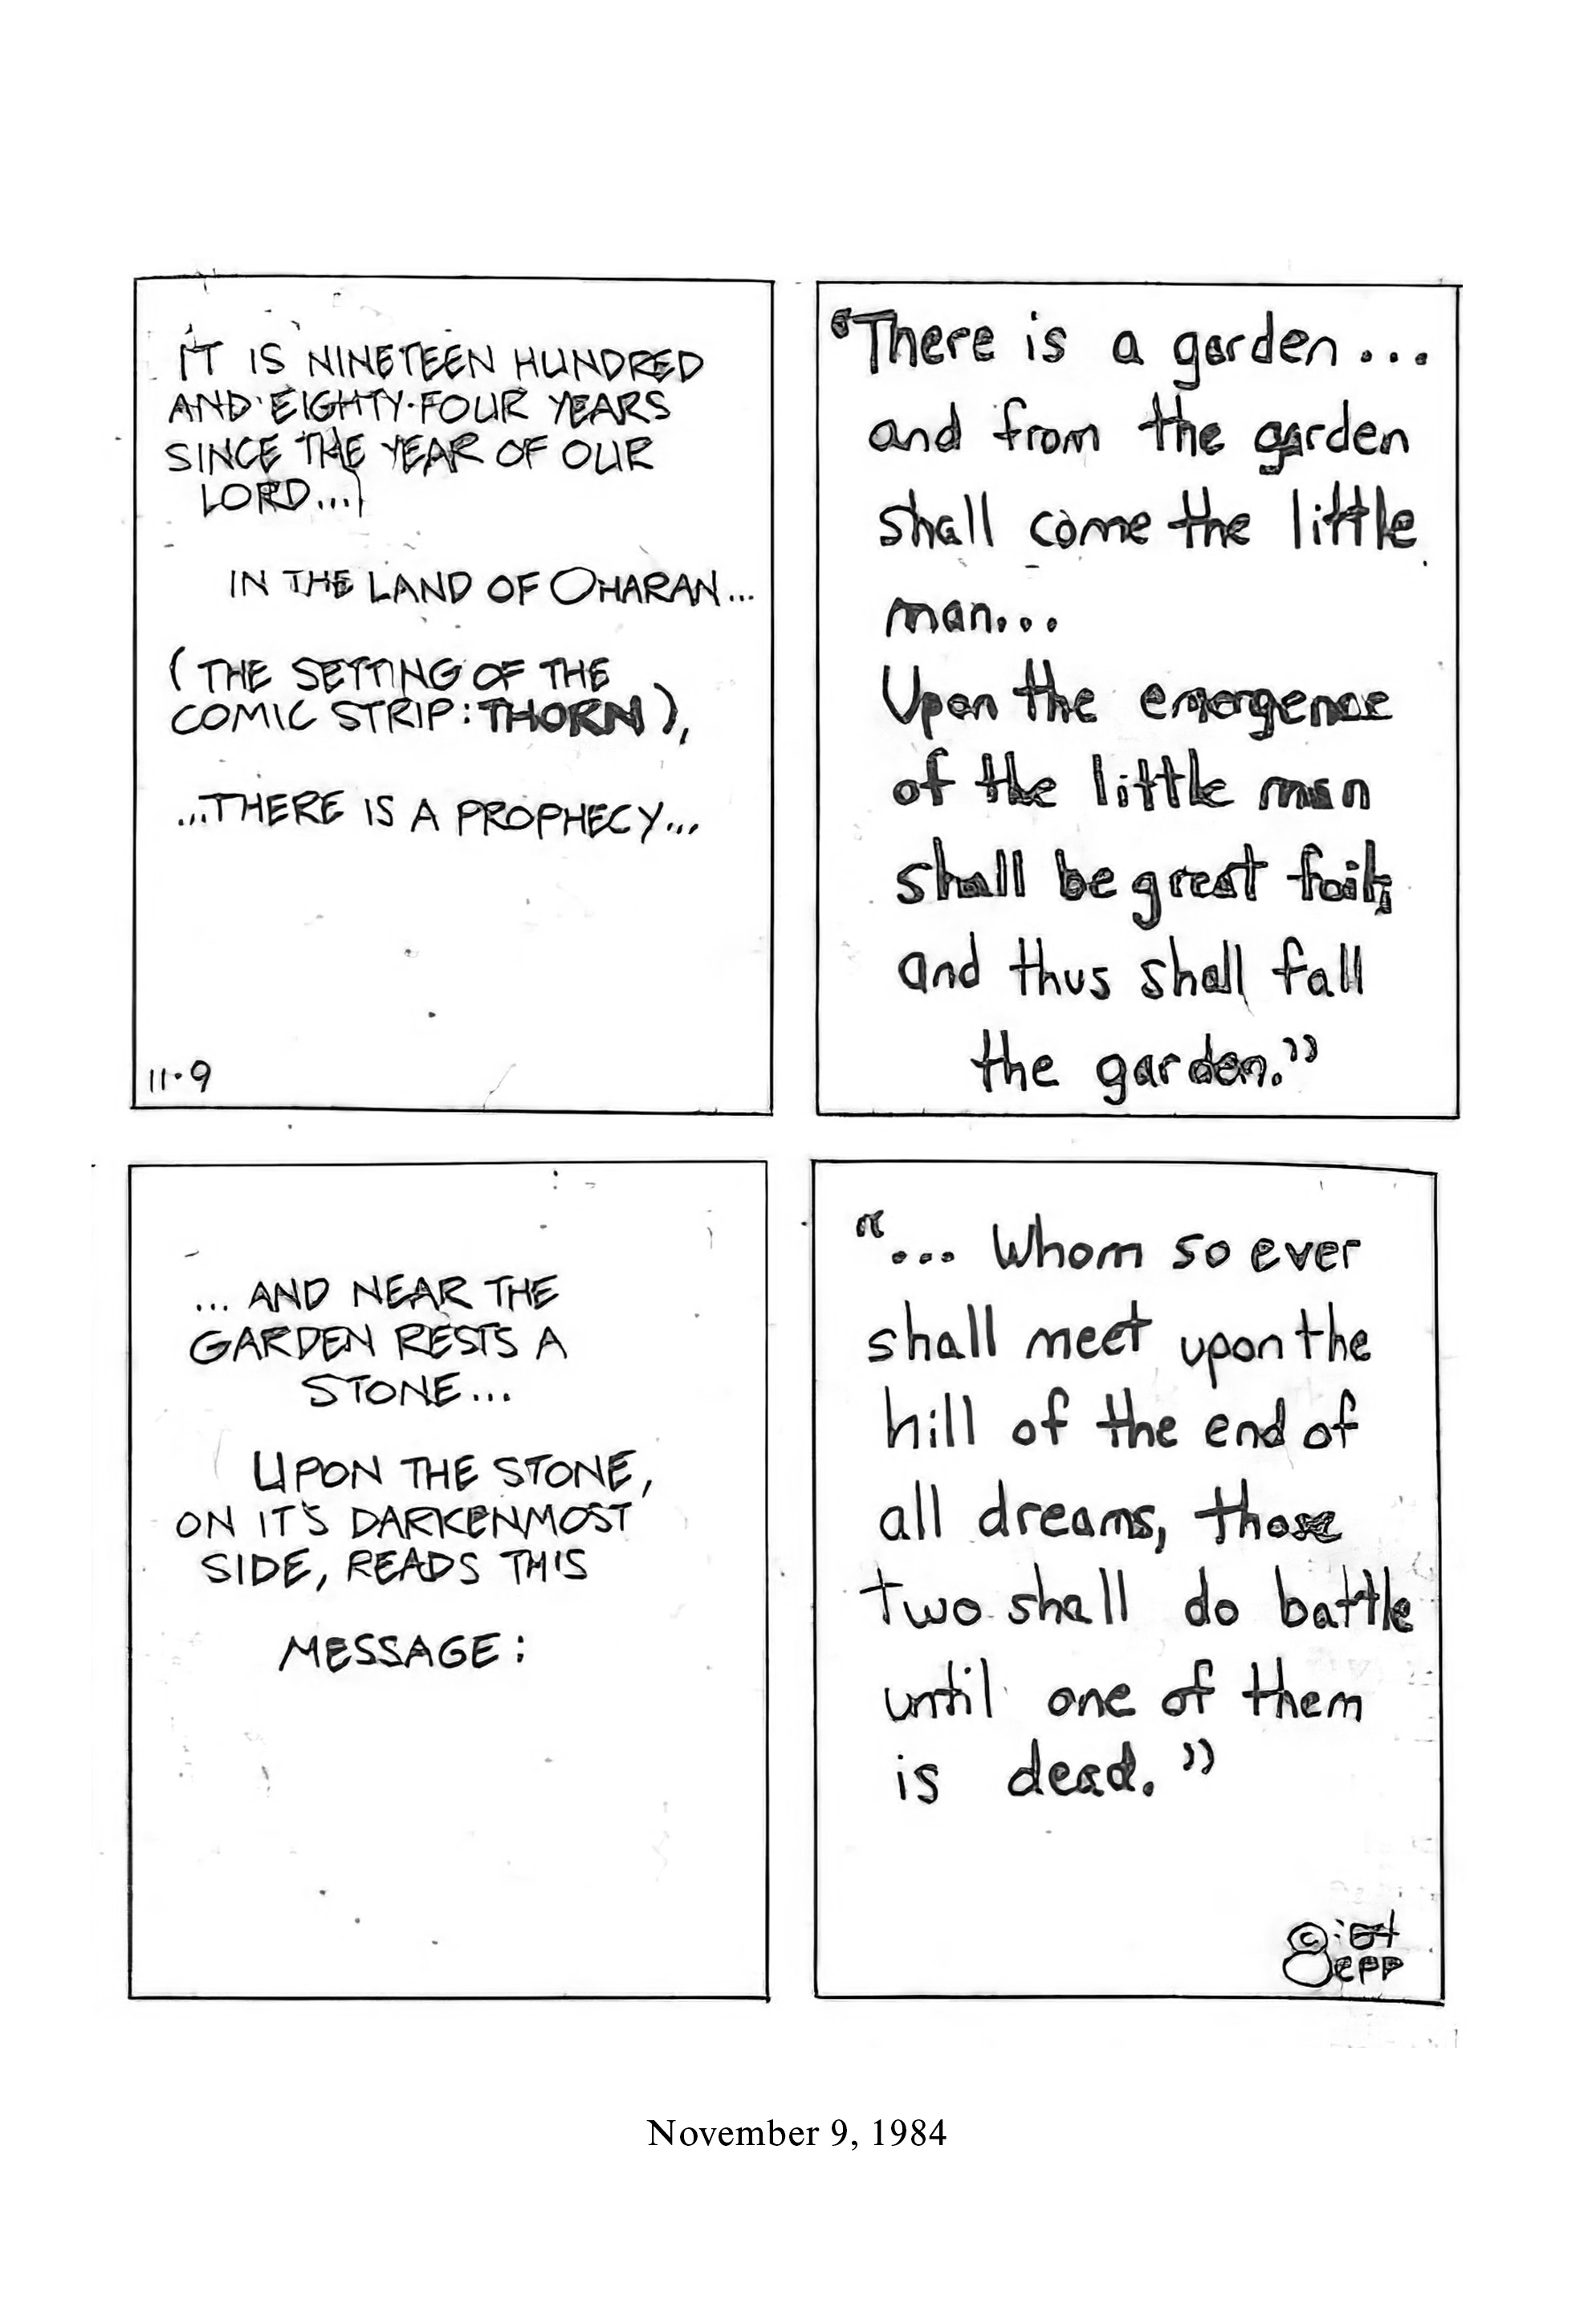 IT IS NINETEEN HUNDRED
AND EIGHTY-FOUR YEARS
SINCE THE YEAR OF OUR
LORD...
IN THE LAND OF OHARAN...
(THE SETTING OF THE
COMIC STRIP: THORN),
...THERE IS A PROPHECY...
11·9
"There is a garden...
and from the garden
shall come the little
man...
Upon the emergence
of the little man
shall be great
and thus shall fall
the garden."
... AND NEAR THE
GARDEN RESTS A
STONE...
UPON THE STONE,
ON IT'S DARKENMOST
SIDE, READS THIS
MESSAGE:
"... Whom so ever
shall meet upon the
hill of the end of
all dreams, those
two shall do battle
until one of them
is dead."
©
November 9, 1984